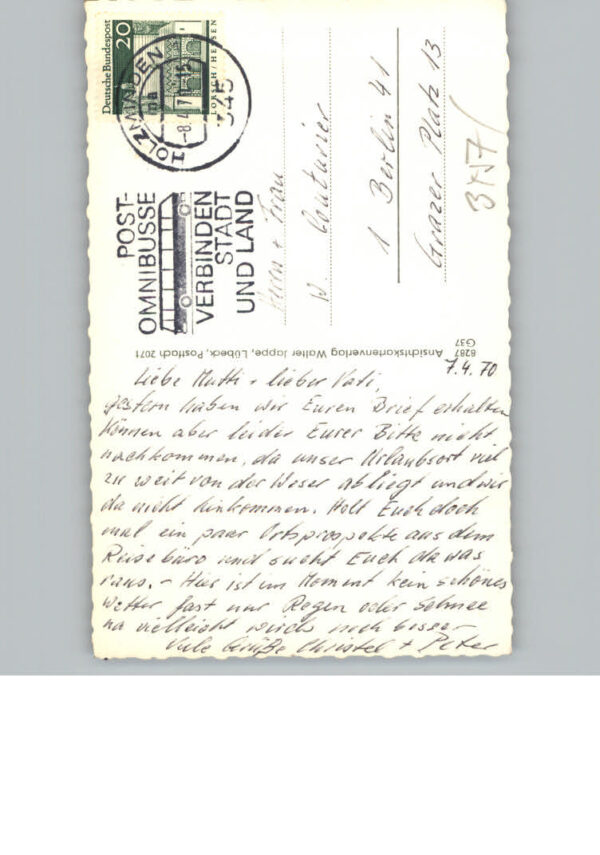 Deutsche Bundespost
20
LORSCH/HESSEN
HOLZMINDEN
na
-8.4.7
345
POST-
OMNIBUSSE
VERBINDEN
STADT
UND LAND
Herrn + Frau
W. Couturier
1 Berlin 41
Grazer Platz 13
8287 Ansichtskartenverlag Walter Jappe, Lübeck, Postfach 2071
G37
7.4.70
Liebe Mutti + lieber Vati,
gestern haben wir Euren Brief erhalten
können aber leider Eurer Bitte nicht
nachkommen, da unser Urlaubsort viel
zu weit von der Weser abliegt und wir
da nicht hinkommen. Holt Euch doch
mal ein paar Ortsprospekte aus dem
Reisebüro und sucht Euch da was
raus. – Hier ist im Moment kein schönes
Wetter fast nur Regen oder Schnee
na vielleicht wirds noch besser
Viele Grüße Christel + Peter